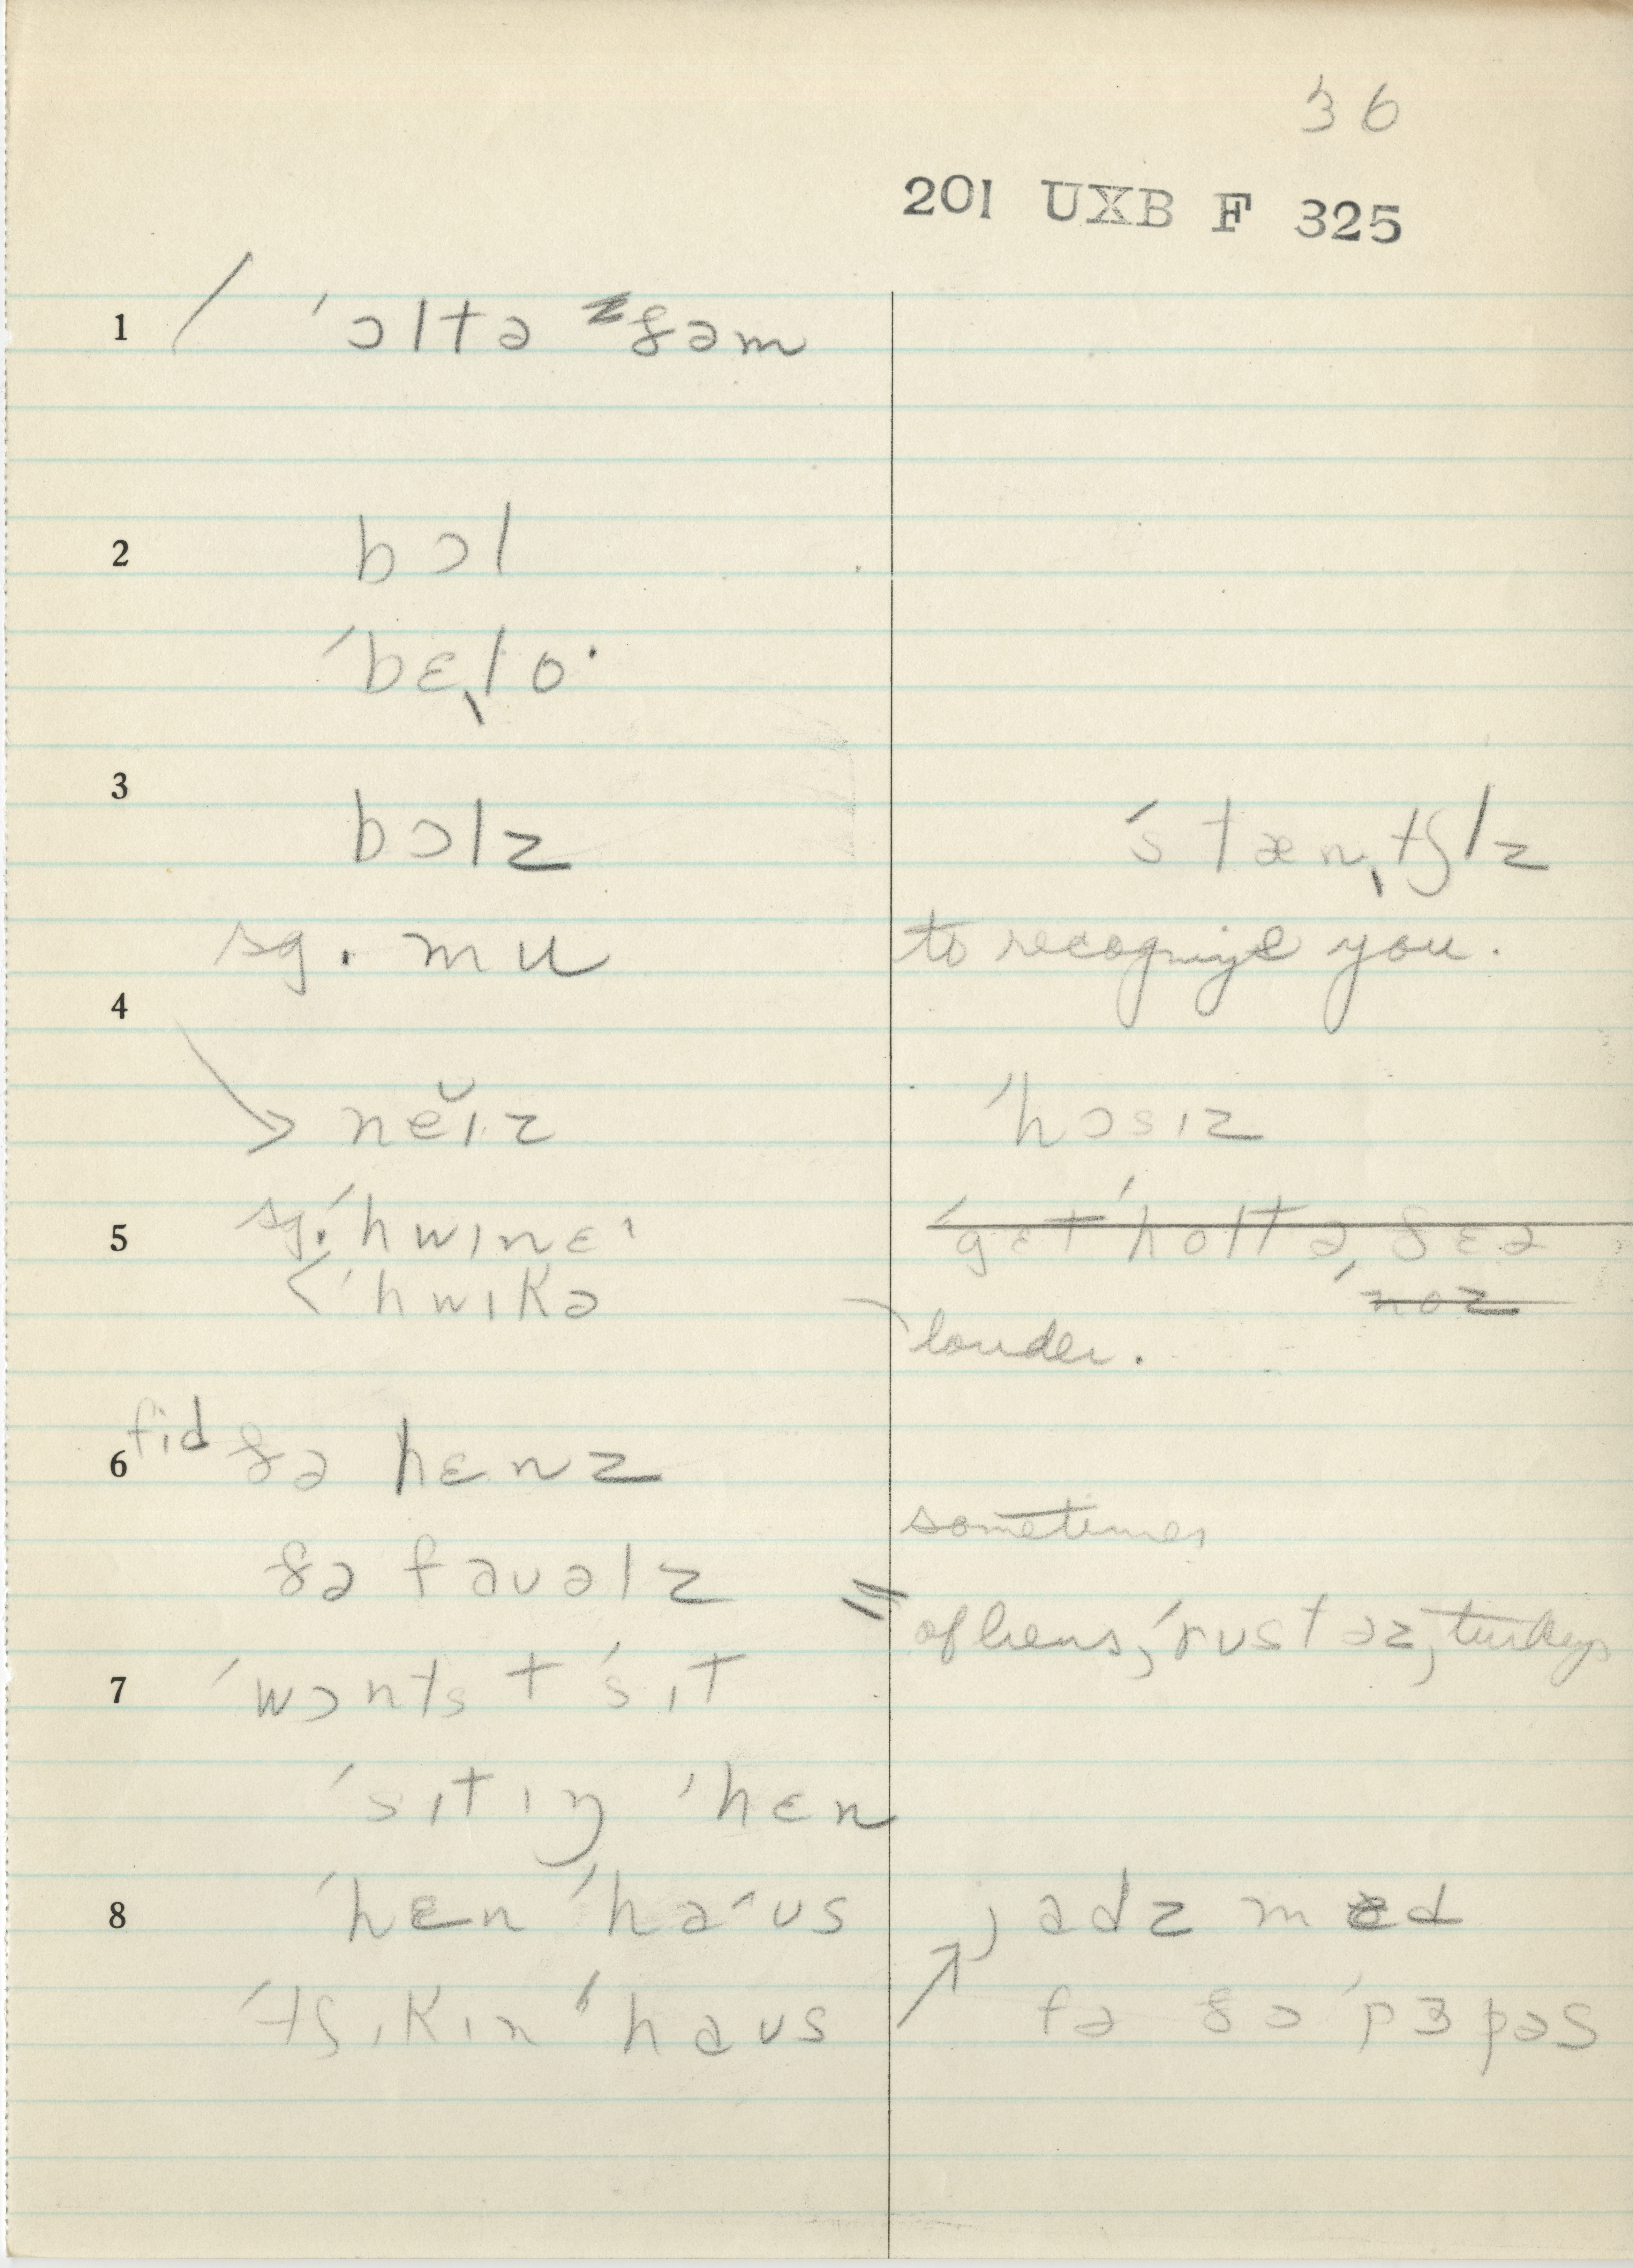 36
201 UXB F 325
1 / ˈɔltə ðəm
2 bɔl
ˈbɛˌlo·
3 bɔlz
ˈstænˌtʃlz
sg. mu
to recognize you.
4
> nĕɪz
ˈhɔsɪz
5 sg. ˈhwɪnɛˈ
ˈgɛt ˈholtə ˌðɛə
< ˈhwɪkə
noz
louder.
6 fid ðə hɛnz
sometimes
ðə faʊəlz
= of hens, ˈrustəz, turkeys
7 ˈwɔnts t ˈsɪt
ˈsɪtɪŋ ˈhɛn
8 ˈhɛn ˈhaˑʊs
jadz mɛd
ˈtʃɪkɪn ˈhaʊs
↗ fə ðə ˈpɜpəs